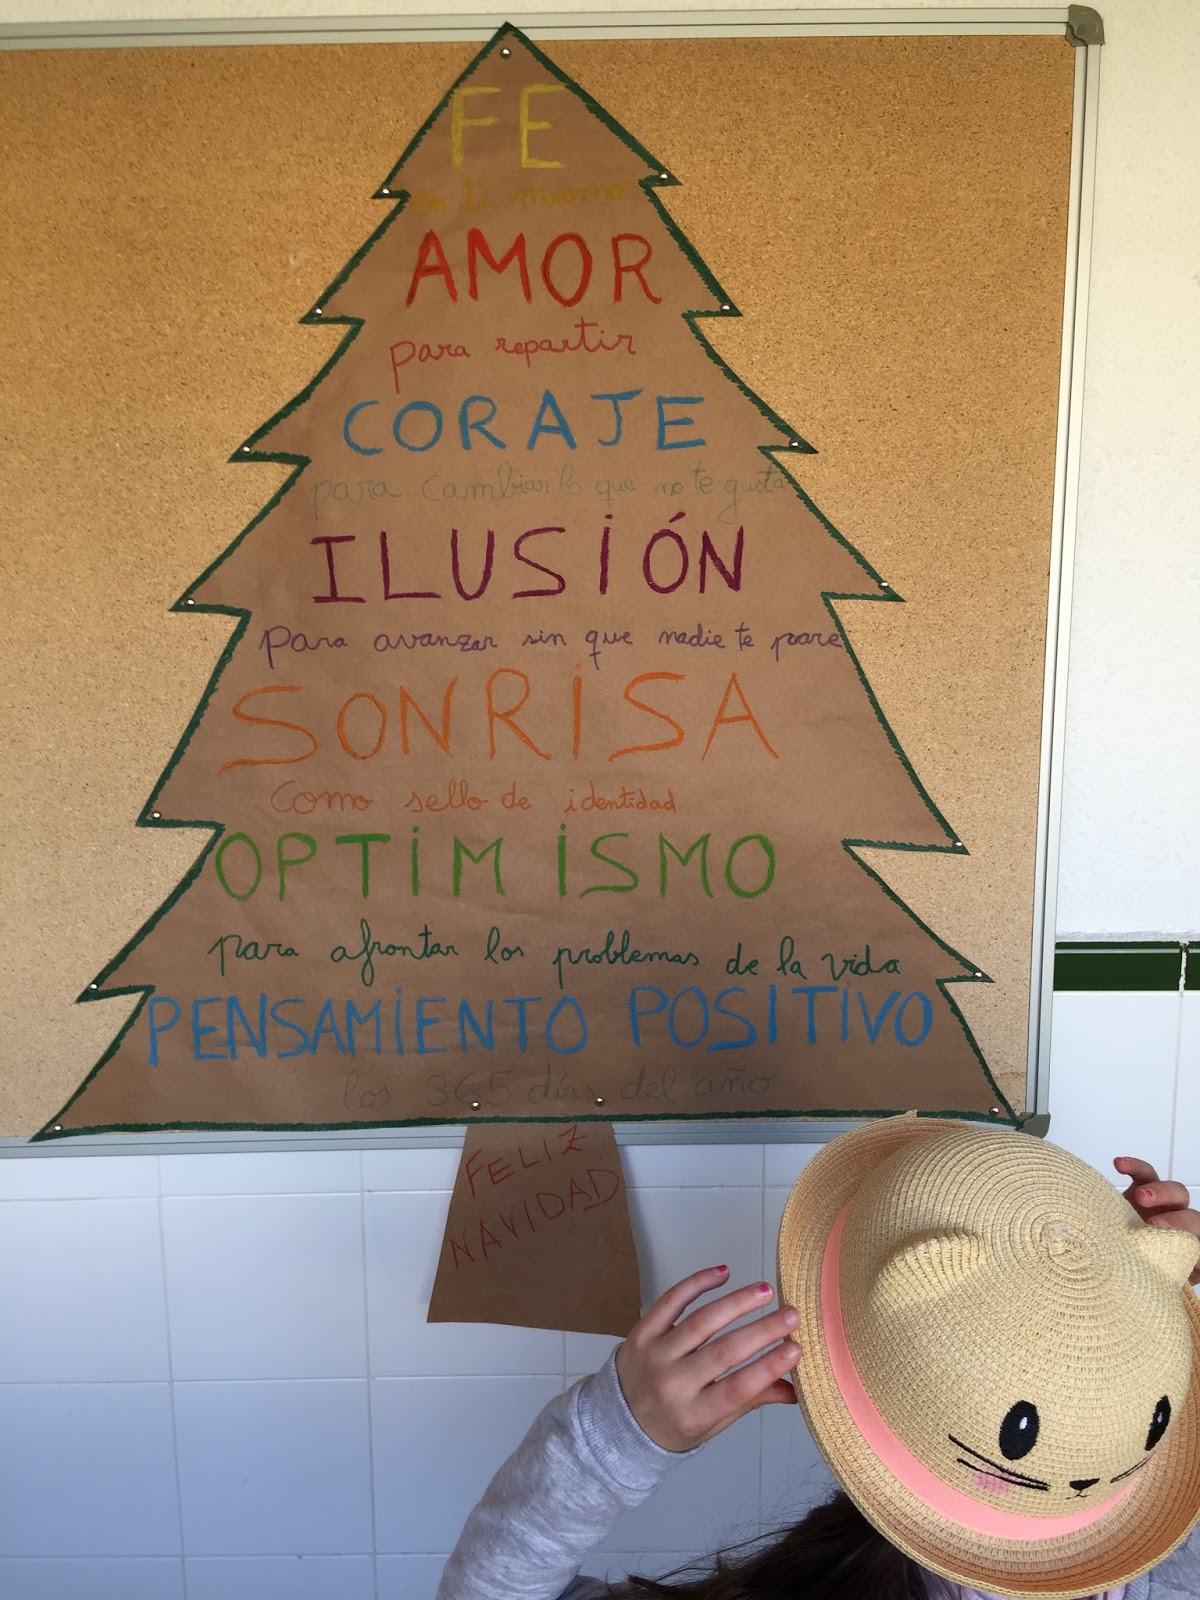 FE
en ti mismo
AMOR
para repartir
CORAJE
para cambiar lo que no te gusta
ILUSIÓN
para avanzar sin que nadie te pare
SONRISA
como sello de identidad
OPTIMISMO
para afrontar los problemas de la vida
PENSAMIENTO POSITIVO
los 365 días del año
FELIZ
NAVIDAD